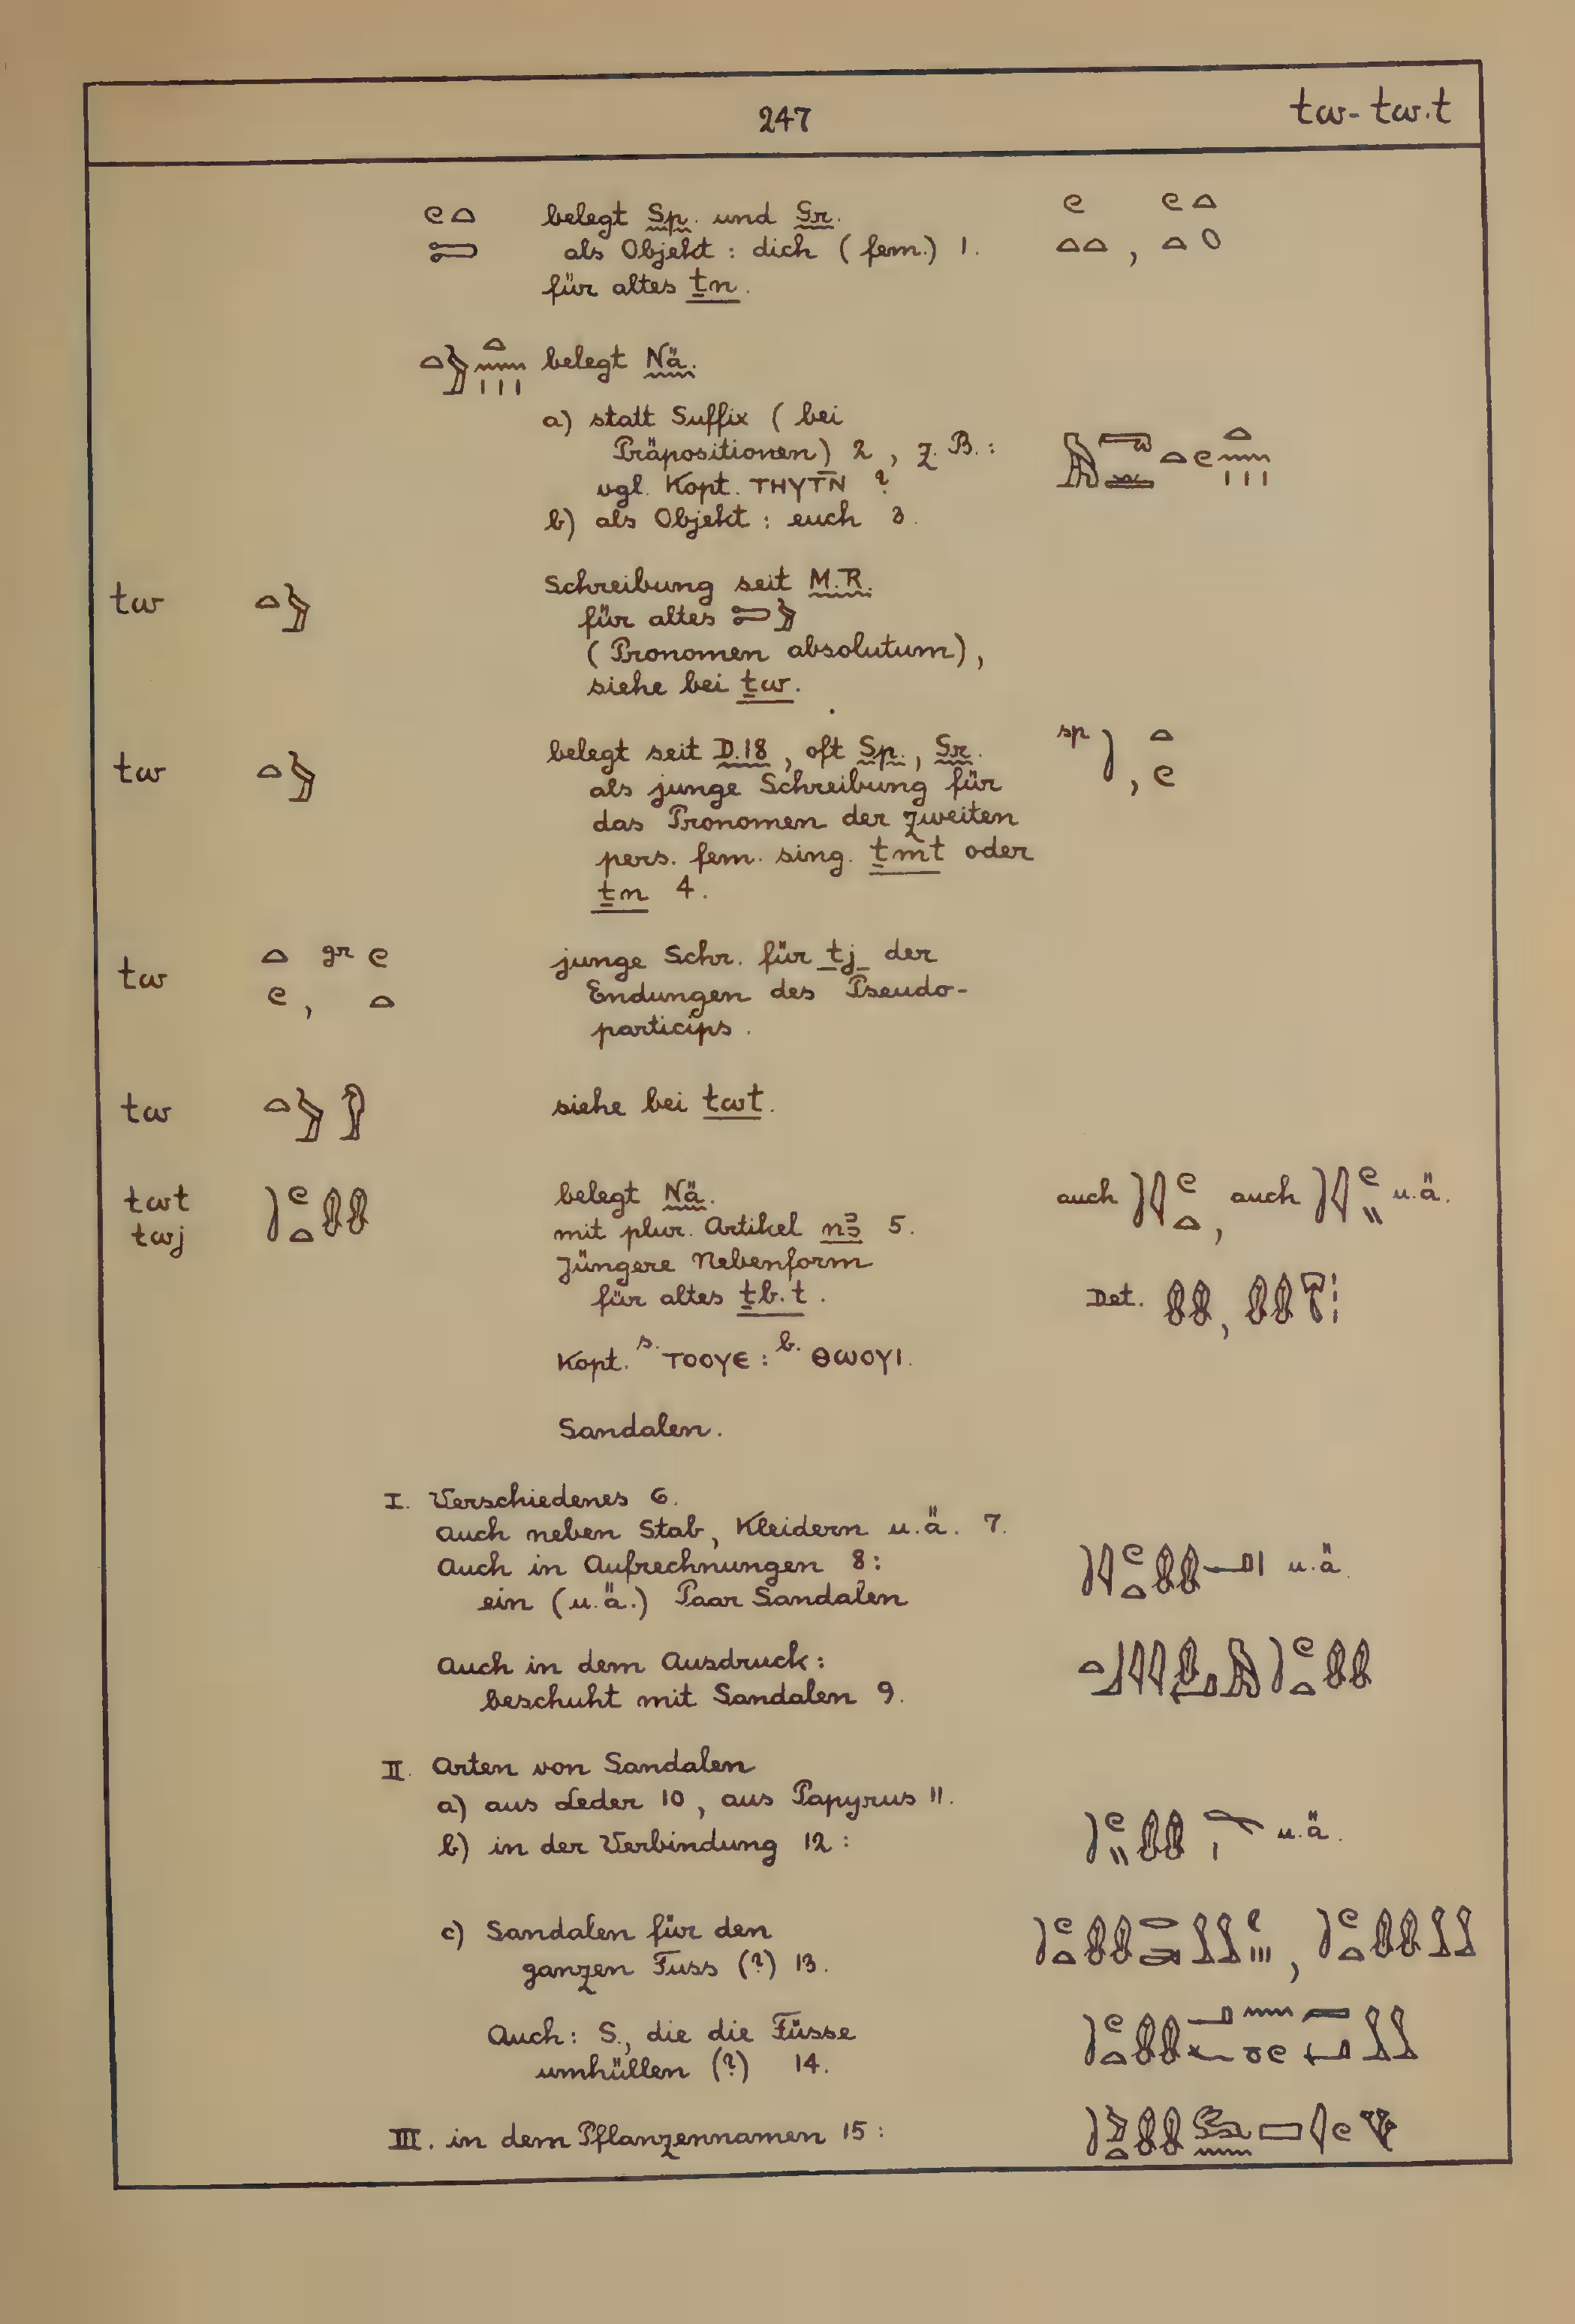 247
tw - tw.t
belegt Sp. und Gr.
als Objekt : dich ( fem.) 1.
für altes ṯn.
belegt Nä.
a) statt Suffix ( bei
Präpositionen) 2 , z. B. :
vgl. Kopt. ⲦⲎⲨⲦⲚ̄ ?
b) als Objekt : euch 3.
tw
Schreibung seit M.R.
für altes
( Pronomen absolutum),
siehe bei ṯw.
tw
belegt seit D.18 , oft Sp., Gr.
sp
als junge Schreibung für
das Pronomen der zweiten
pers. fem. sing. ṯmt oder
ṯn 4.
tw
gr
junge Schr. für tj der
Endungen des Pseudo-
particips.
tw
siehe bei twt.
twt
twj
belegt Nä.
auch , auch u.ä.
mit plur. Artikel nꜣ 5.
Jüngere Nebenform
für altes ṯb.t.
Det.
Kopt. s. ⲦⲞⲞⲨⲈ : b. ⲐⲰⲞⲨⲒ.
Sandalen.
I. Verschiedenes 6.
Auch neben Stab, Kleidern u.ä. 7.
Auch in Aufrechnungen 8 :
u.ä.
ein (u.ä.) Paar Sandalen
Auch in dem Ausdruck :
beschuht mit Sandalen 9.
II. Arten von Sandalen
a) aus Leder 10 , aus Papyrus 11.
b) in der Verbindung 12 :
u.ä.
c) Sandalen für den
ganzen Fuss (?) 13.
Auch : S., die die Füsse
umhüllen (?) 14.
III. in dem Pflanzennamen 15 :